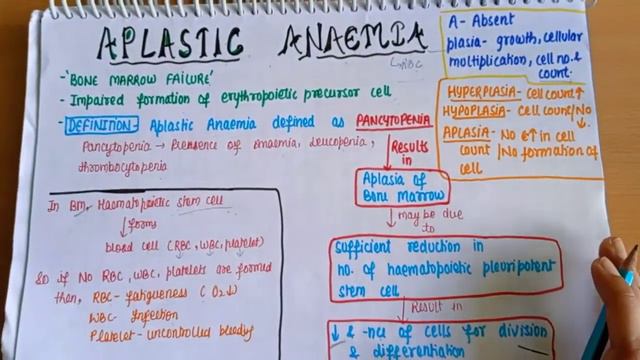 APLASTIC ANAEMIA
↳RBC
- 'BONE MARROW FAILURE'
- Impaired formation of erythropoietic precursor cell
- DEFINITION- Aplastic Anaemia defined as PANCYTOPENIA
Pancytopenia → Presence of anaemia, leucopenia,
thrombocytopenia
A- Absent
plasia- growth, cellular
multiplication, cell no. &
count.
HYPERPLASIA- Cell count↑
HYPOPLASIA- Cell count/No ↓.
APLASIA- No e↑ in cell
count / No formation of
cell
Results
in
Aplasia of
Bone Marrow
may be due
to
sufficient reduction in
no. of haematopoietic pleuripotent
stem cell
Result in
↓ & -nce of cells for division
& differentiation
In BM, Haematopoietic stem cell
↓ forms
blood cell (RBC, WBC, platelet)
So if No RBC, WBC, platelets are formed
then, RBC- fatigueness (O2↓)
WBC- Infection
Platelet- uncontrolled bleedig